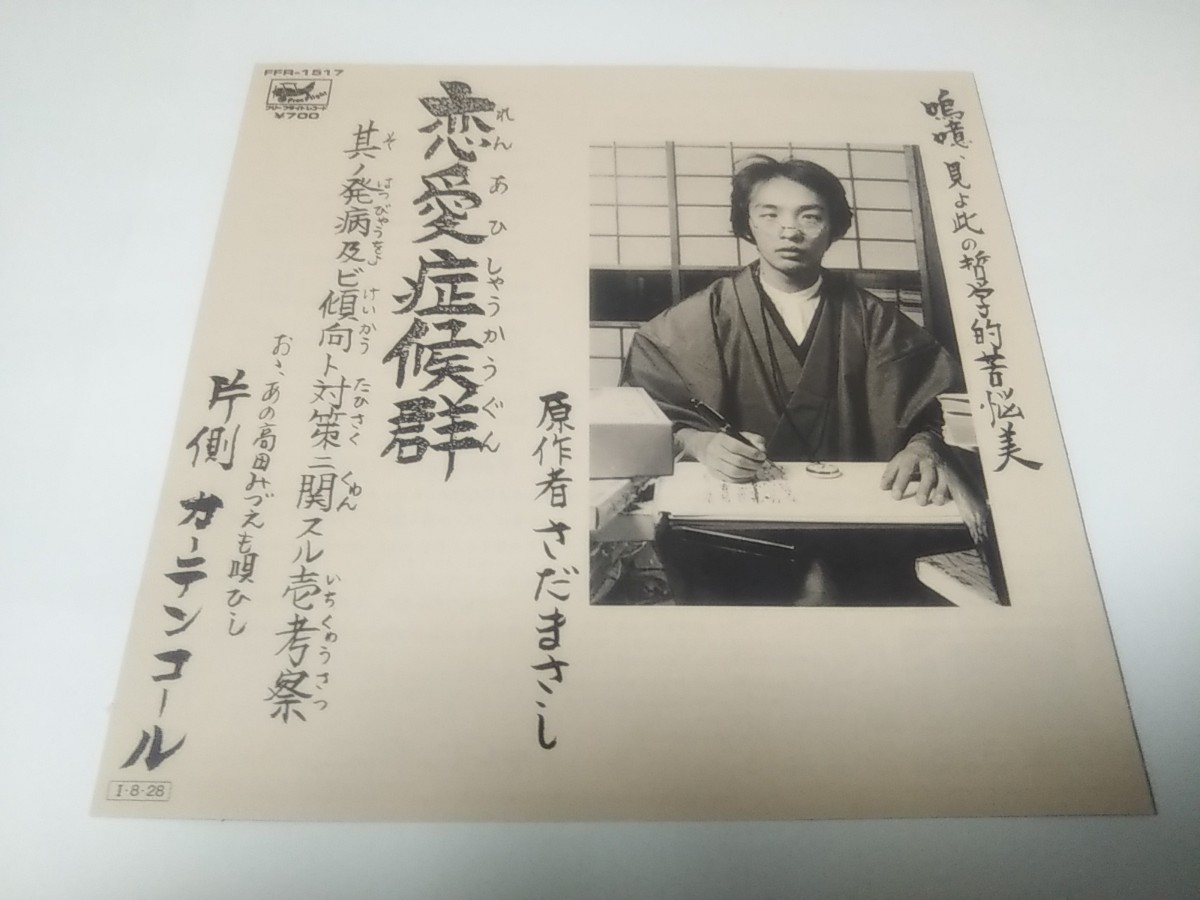 FFR-1517
Free Flight
フリーフライトレコード
¥700
嗚噫、見よ此の哲学的苦悩美
原作者 さだまさし
恋愛症候群
れんあひしゃうかうぐん
其ノ発病及ビ傾向ト対策ニ関スル壱考察
そ はつびゃうをよ けいかう たひさく くゎん いちくゎうさつ
おゝ、あの高田みづえも唄ひし
片側 カーテンコール
I-8-28